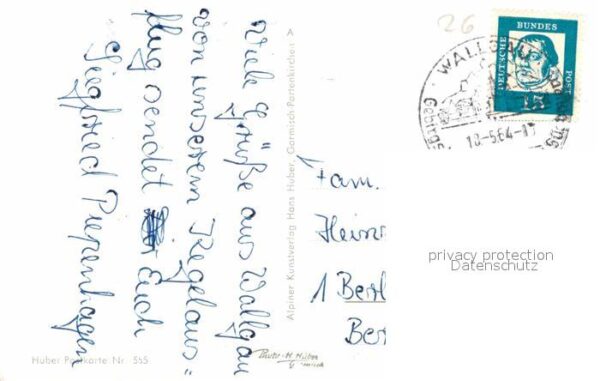 Viele Grüße aus Wallgau
von unserem Kegelaus=
flug sendet Euch
Siegfried Piepenhagen
Alpiner Kunstverlag Hans Huber, Garmisch-Partenkirchen
Huber Postkarte Nr. 565
26
DEUTSCHE BUNDES POST
15
WALLGAU
18-5.64-17
Fam.
Heinr
1 Berl
Ber
privacy protection
Datenschutz